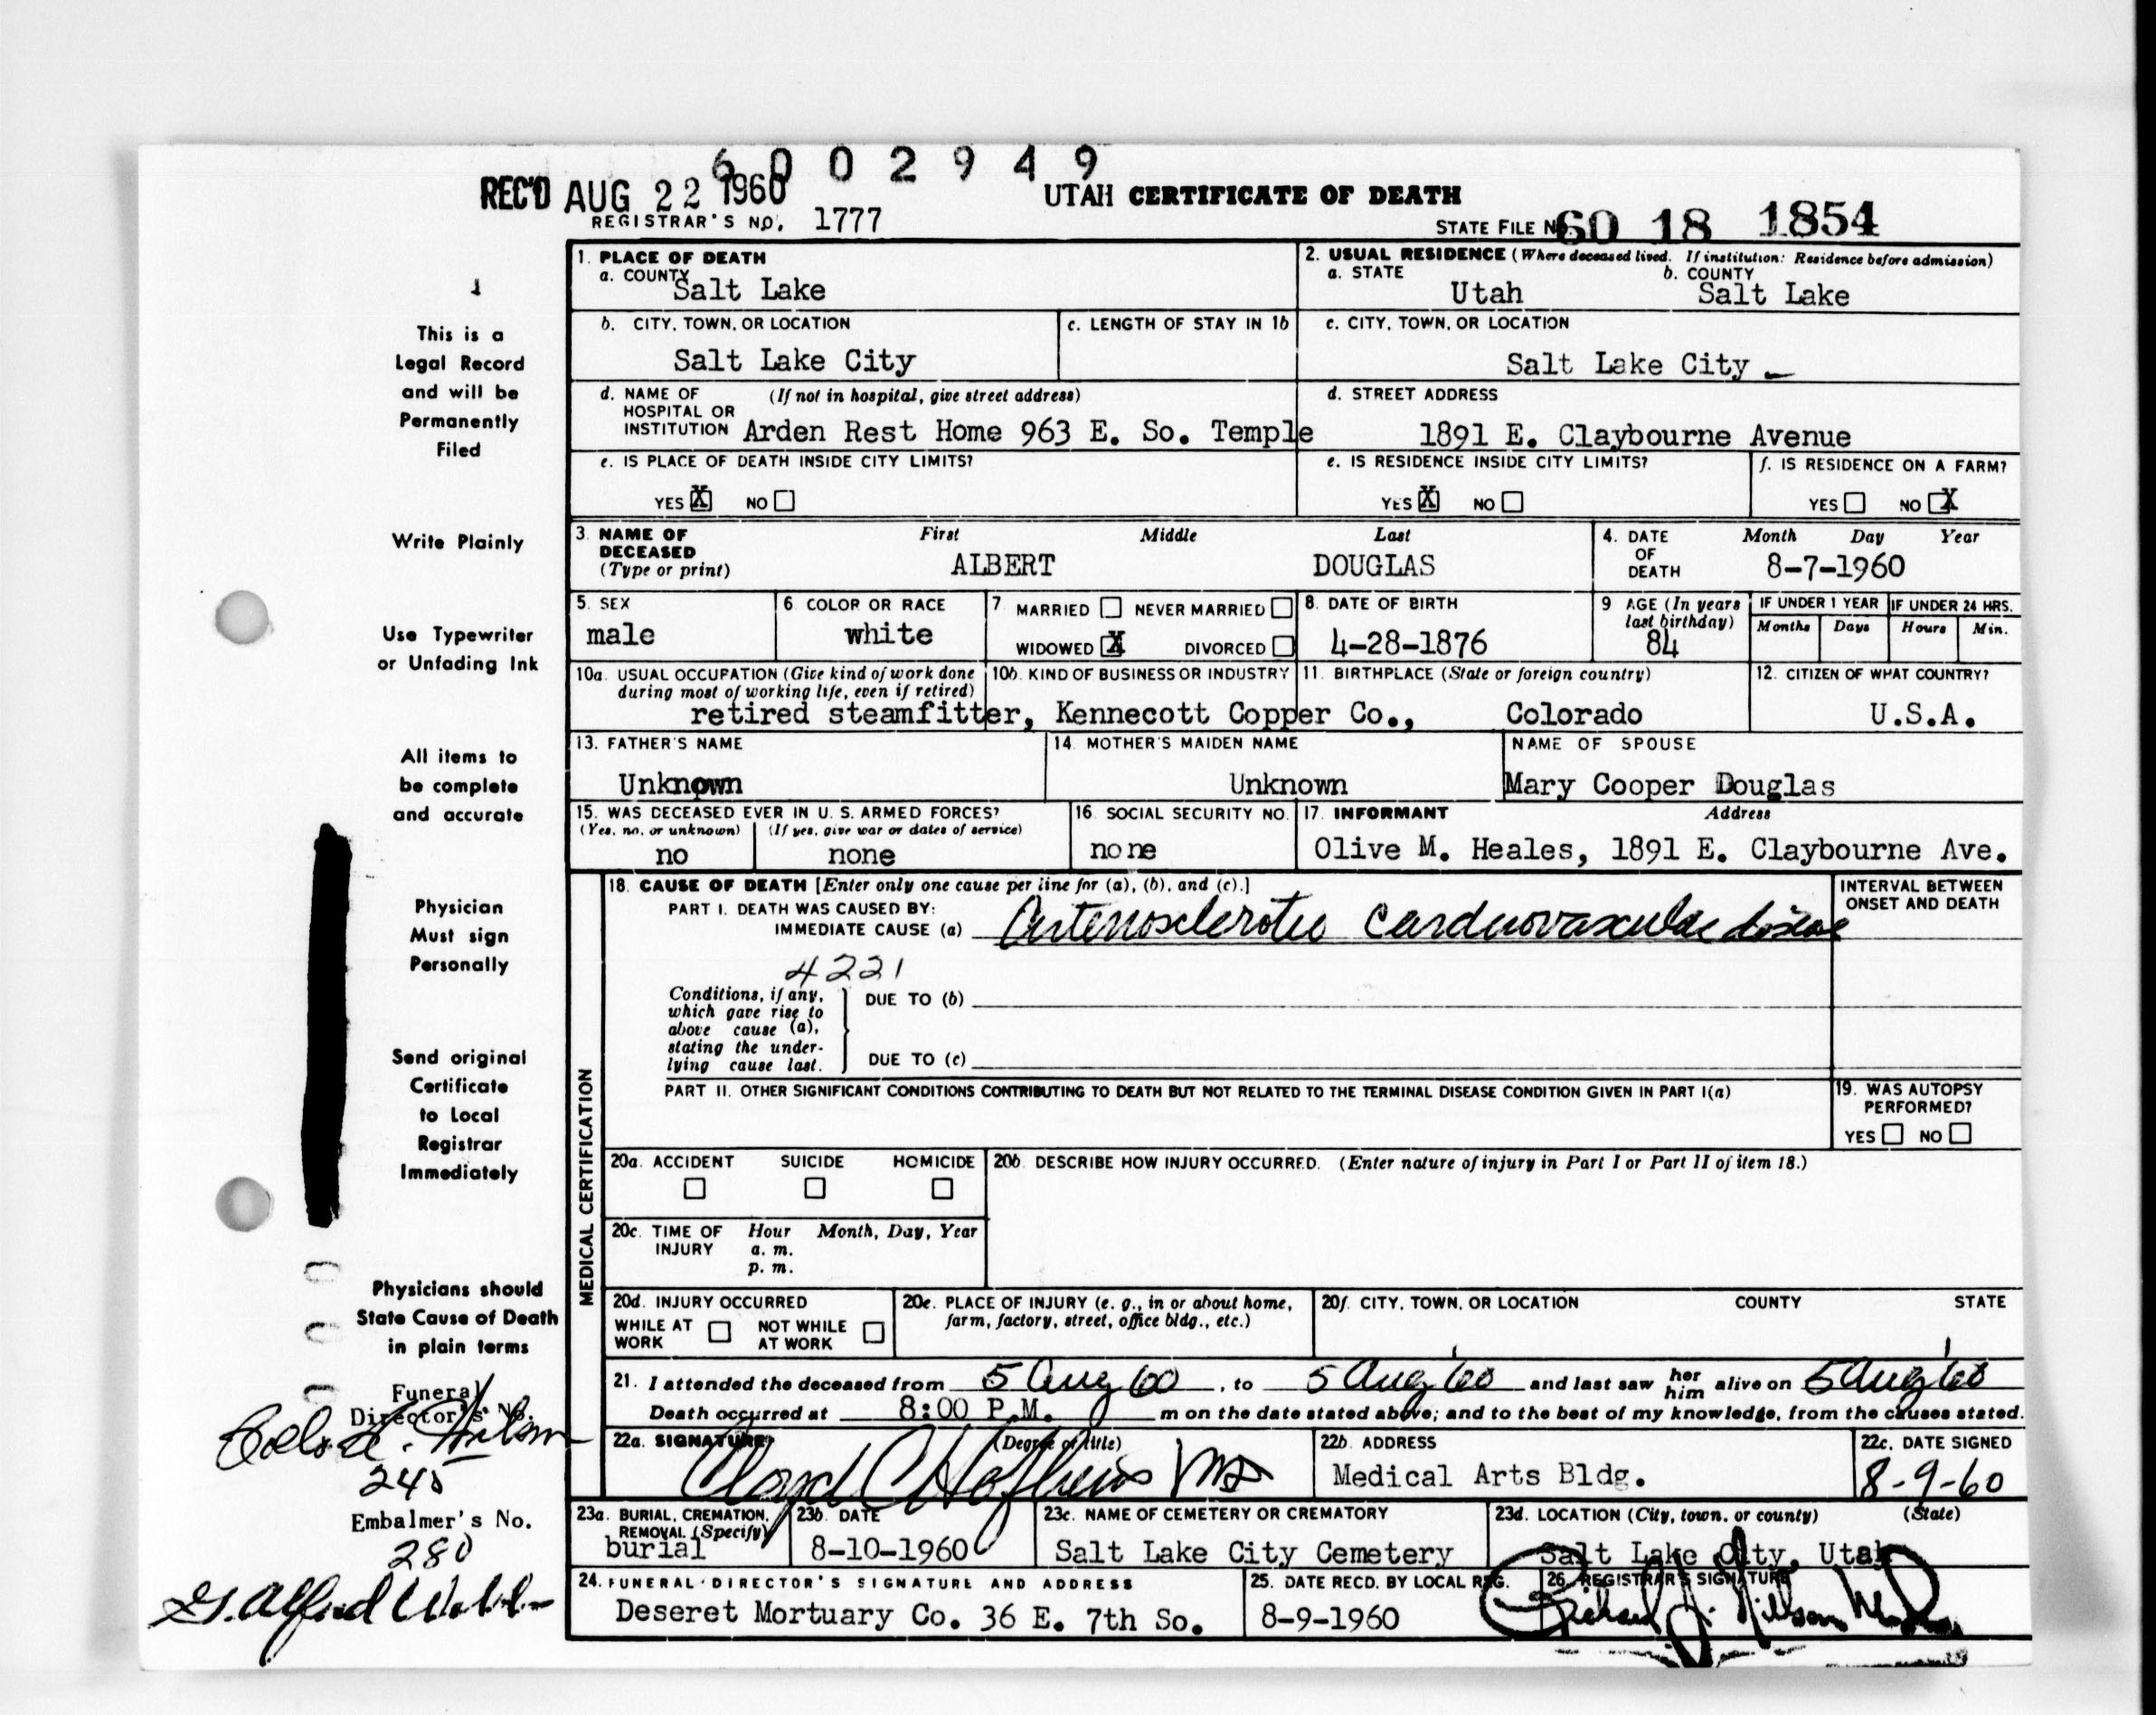 6 0 0 2 9 4 9
REC'D AUG 22 1960
UTAH CERTIFICATE OF DEATH
REGISTRAR'S NO. 1777
STATE FILE NO. 60 18 1854
1. PLACE OF DEATH
a. COUNTY Salt Lake
2. USUAL RESIDENCE (Where deceased lived. If institution: Residence before admission)
a. STATE Utah b. COUNTY Salt Lake
b. CITY, TOWN, OR LOCATION Salt Lake City
c. LENGTH OF STAY IN 1b
c. CITY, TOWN, OR LOCATION Salt Lake City
d. NAME OF HOSPITAL OR INSTITUTION (If not in hospital, give street address) Arden Rest Home 963 E. So. Temple
d. STREET ADDRESS 1891 E. Claybourne Avenue
e. IS PLACE OF DEATH INSIDE CITY LIMITS? YES X NO
e. IS RESIDENCE INSIDE CITY LIMITS? YES X NO
f. IS RESIDENCE ON A FARM? YES NO X
3. NAME OF DECEASED (Type or print) First Middle Last
ALBERT DOUGLAS
4. DATE OF DEATH Month Day Year
8-7-1960
5. SEX male
6. COLOR OR RACE white
7. MARRIED NEVER MARRIED
WIDOWED X DIVORCED
8. DATE OF BIRTH 4-28-1876
9. AGE (In years last birthday) 84
IF UNDER 1 YEAR Months Days
IF UNDER 24 HRS. Hours Min.
10a. USUAL OCCUPATION (Give kind of work done during most of working life, even if retired)
10b. KIND OF BUSINESS OR INDUSTRY
retired steamfitter, Kennecott Copper Co.,
11. BIRTHPLACE (State or foreign country) Colorado
12. CITIZEN OF WHAT COUNTRY? U.S.A.
13. FATHER'S NAME Unknown
14. MOTHER'S MAIDEN NAME Unknown
NAME OF SPOUSE Mary Cooper Douglas
15. WAS DECEASED EVER IN U. S. ARMED FORCES?
(Yes, no, or unknown) no
(If yes, give war or dates of service) none
16. SOCIAL SECURITY NO. none
17. INFORMANT Address
Olive M. Heales, 1891 E. Claybourne Ave.
MEDICAL CERTIFICATION
18. CAUSE OF DEATH [Enter only one cause per line for (a), (b), and (c).]
INTERVAL BETWEEN ONSET AND DEATH
PART I. DEATH WAS CAUSED BY:
IMMEDIATE CAUSE (a) Arteriosclerotic Cardiovascular disease
4221
Conditions, if any, which gave rise to above cause (a), stating the underlying cause last.
DUE TO (b)
DUE TO (c)
PART II. OTHER SIGNIFICANT CONDITIONS CONTRIBUTING TO DEATH BUT NOT RELATED TO THE TERMINAL DISEASE CONDITION GIVEN IN PART I(a)
19. WAS AUTOPSY PERFORMED?
YES NO
20a. ACCIDENT SUICIDE HOMICIDE
20b. DESCRIBE HOW INJURY OCCURRED. (Enter nature of injury in Part I or Part II of item 18.)
20c. TIME OF INJURY Hour Month, Day, Year
a. m.
p. m.
20d. INJURY OCCURRED
WHILE AT WORK NOT WHILE AT WORK
20e. PLACE OF INJURY (e. g., in or about home, farm, factory, street, office bldg., etc.)
20f. CITY, TOWN, OR LOCATION COUNTY STATE
21. I attended the deceased from 5 Aug 60, to 5 Aug 60 and last saw her him alive on 5 Aug 60
Death occurred at 8:00 P.M. m on the date stated above; and to the best of my knowledge, from the causes stated.
22a. SIGNATURE (Degree or title)
MD
22b. ADDRESS Medical Arts Bldg.
22c. DATE SIGNED 8-9-60
23a. BURIAL, CREMATION, REMOVAL (Specify) burial
23b. DATE 8-10-1960
23c. NAME OF CEMETERY OR CREMATORY Salt Lake City Cemetery
23d. LOCATION (City, town, or county) (State) Salt Lake City, Utah
24. FUNERAL DIRECTOR'S SIGNATURE AND ADDRESS Deseret Mortuary Co. 36 E. 7th So.
25. DATE RECD. BY LOCAL REG. 8-9-1960
26. REGISTRAR'S SIGNATURE
1
This is a
Legal Record
and will be
Permanently
Filed
Write Plainly
Use Typewriter
or Unfading Ink
All items to
be complete
and accurate
Physician
Must sign
Personally
Send original
Certificate
to Local
Registrar
Immediately
Physicians should
State Cause of Death
in plain terms
Funeral
Director's No.
240
Embalmer's No.
280
Alfred